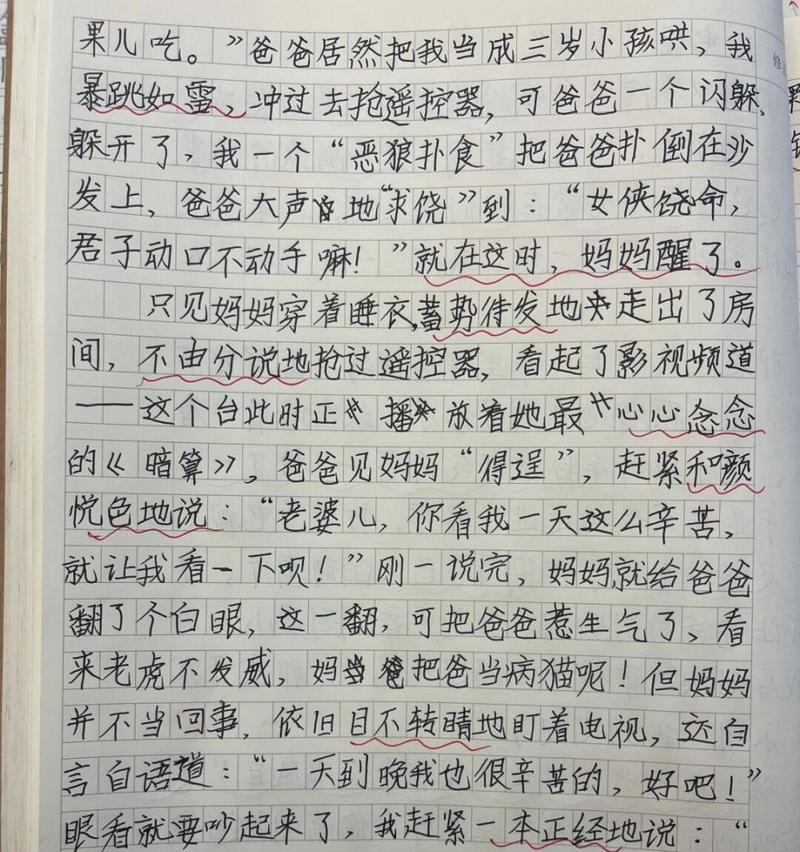 果儿吃。”爸爸居然把我当成三岁小孩哄，我
暴跳如雷，冲过去抢遥控器，可爸爸一个闪躲，
躲开了，我一个“恶狼扑食”把爸爸扑倒在沙
发上，爸爸大声地“求饶”到：“女侠饶命，
君子动口不动手嘛！”就在这时，妈妈醒了。
只见妈妈穿着睡衣，蓄势待发地走出了房
间，不由分说地抢过遥控器，看起了影视频道
——这个台此时正播放着她最心心念念
的《暗算》。爸爸见妈妈“得逞”，赶紧和颜
悦色地说：“老婆儿，你看我一天这么辛苦，
就让我看一下呗！”刚一说完，妈妈就给爸爸
翻了个白眼，这一翻，可把爸爸惹生气了，看
来老虎不发威，妈把爸当病猫呢！但妈妈
并不当回事，依旧目不转睛地盯着电视，还自
言自语道：“一天到晚我也很辛苦的，好吧！”
眼看就要吵起来了，我赶紧一本正经地说：“